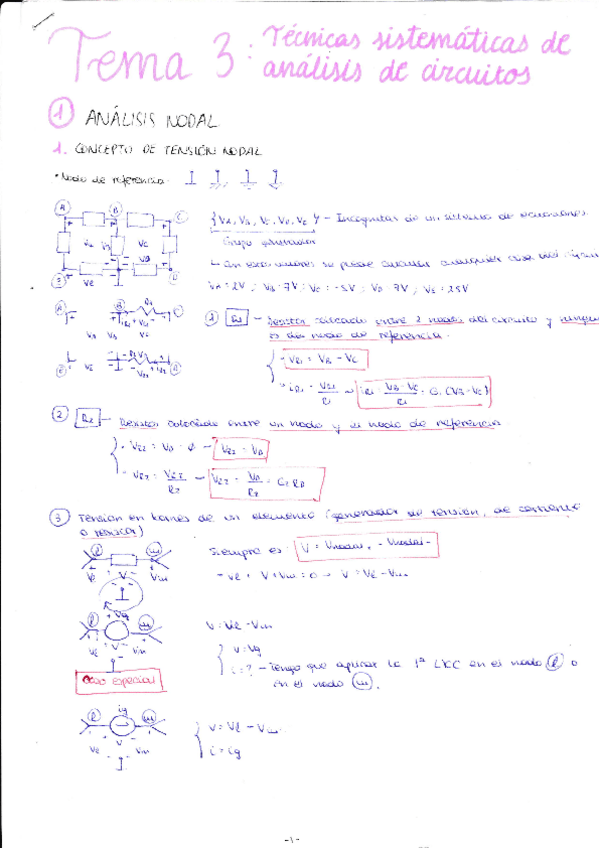 Tema 3: Técnicas sistemáticas de
análisis de circuitos
1 ANÁLISIS NODAL
1. CONCEPTO DE TENSIÓN NODAL
• Nodo de referencia
{VA, VB, VC, VD, VE} - Incógnitas de un sistema de ecuaciones.
Grupo generador
1 R1 - Resistor colocado entre 2 nodos del circuito y ninguno
es del nodo de referencia.
VR1 = VB - VC
iR1 = VR1/R1 → iR1 = VB - VC/R1 = G1 (VB - VC)
2 R2 - Resistor colocado entre un nodo y el nodo de referencia
VR2 = VD
3 Tensión en bornes de un elemento (generador de tensión, de corriente
o resistor)
Siempre es: V = Vnodo+ - Vnodo-
- Vl + V + Vm = 0 → V = Vl - Vm
V = Vl - Vm
V = Vg
i = ? - Tengo que aplicar la 1ª LKC en el nodo l o
en el nodo m.
Caso especial
V = Vl - Vm
i = ig
-1-